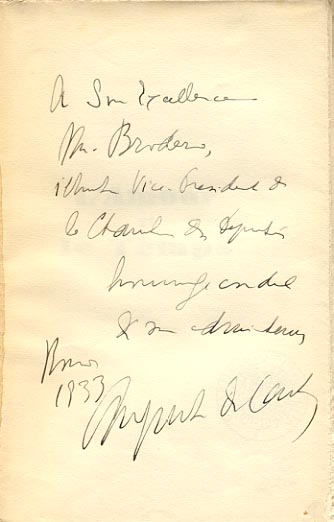 A Son Excellence
Mr. Brodero,
illustre Vice-President de
la Chambre des Députés
hommage cordial
de son admirateur
Rome
1933